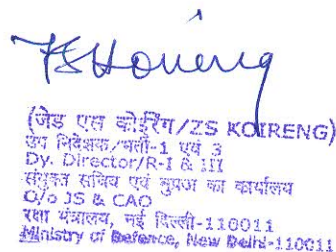 ZS Koireng
(जेड एस कोईरेंग/ZS KOIRENG)
उप निदेशक/भर्ती-1 एवं 3
Dy. Director/R-I & III
संयुक्त सचिव एवं मुप्रअ का कार्यालय
O/o JS & CAO
रक्षा मंत्रालय, नई दिल्ली-110011
Ministry of Defence, New Delhi-110011